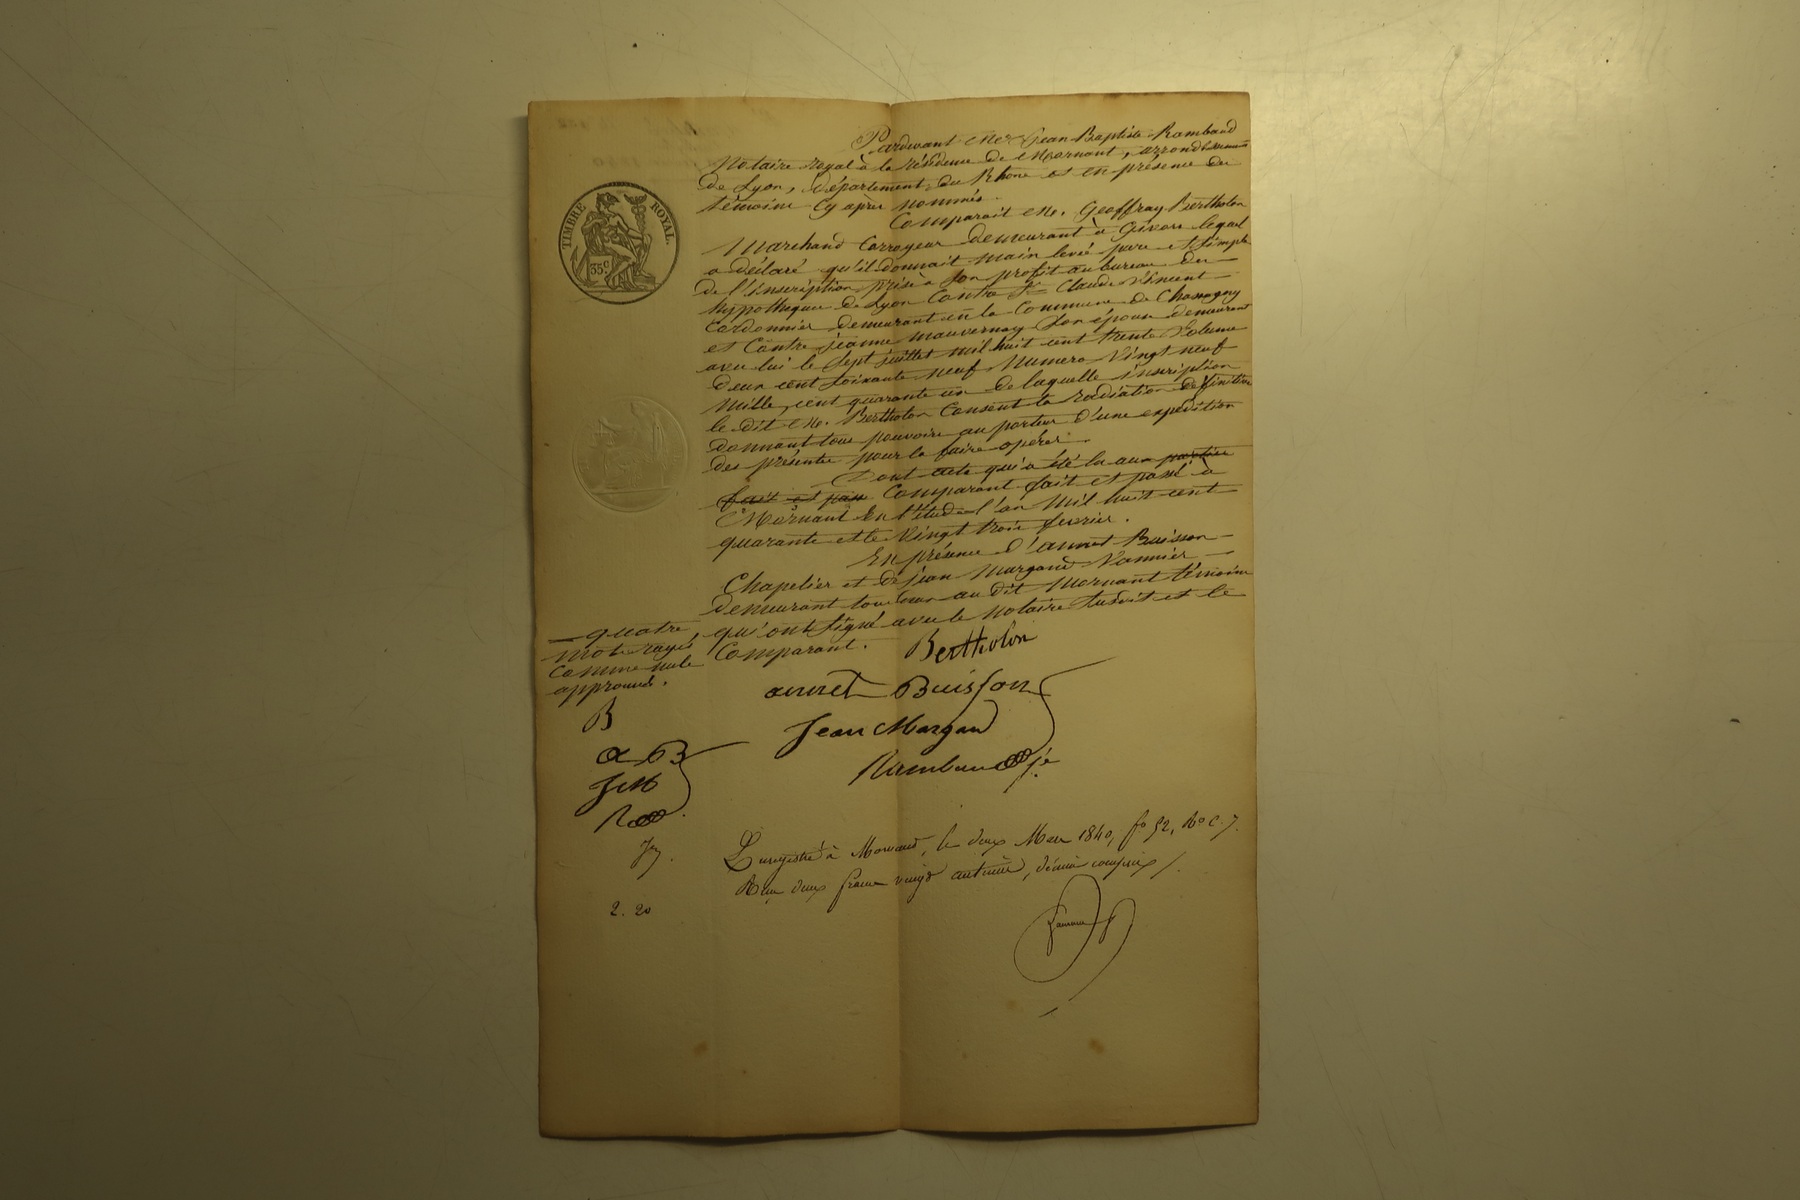 TIMBRE ROYAL.
35 c.
Pardevant Mer Jean Baptiste Rambaud
Notaire royal à la résidence de Mornant, arrondissement
de Lyon, département du Rhône et en présence des
témoins cy après nommés.
Comparait Mr. Geoffray Bertholon
Marchand Corroyeur demeurant à Givors lequel
a déclaré qu'il donnait main levée pure et simple
de l'inscription prise à son profit au bureau des
hypothèques de Lyon Contre Sr. Claude Vincent
Cordonnier demeurant en la Commune de Chassagny
et Contre jeanne mauvernay Son épouse demeurant
avec lui le Sept juillet mil huit cent trente Volume
deux cent soixante neuf Numero Vingt neuf
mille, cent quarante un de laquelle inscription
le dit Mr. Bertholon Consent la radiation définitive
donnant tous pouvoirs au porteur d'une expédition
des présentes pour la faire opérer.
Dont acte qui a été lu aux parties
fait et passé Comparant fait et passé à
Mornant En l'étude l'an Mil huit cent
quarante et le Vingt trois fevrier.
En présence d'annet Buisson
Chapelier et de jean Margand Vannier
demeurant tous deux au dit Mornant témoins
qui ont signé avec le notaire susdit et le
Comparant.
quatre
mots rayés
Comme nuls
approuvés.
Bertholon
annet Buisson
Jean Margand
Rambaud
B
a B
J M
R
Enregistré à Mornant, le deux Mars 1840, fo 52, Ro C. 7.
Reçu deux francs vingt centimes, décime compris
2. 20